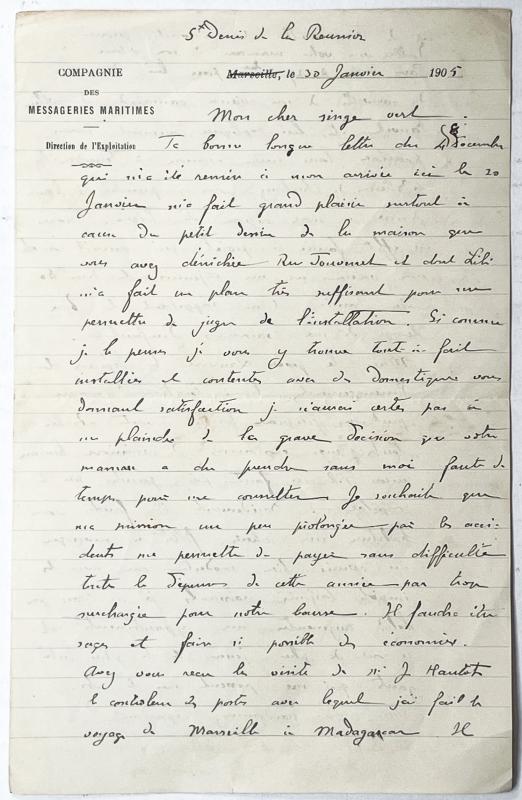 St Denis de la Réunion
COMPAGNIE
DES
MESSAGERIES MARITIMES
Direction de l'Exploitation
Marseille, le 30 Janvier 1905
Mon cher singe vert.
Ta bonne longue lettre du 8 Décembre
qui m'a été remise à mon arrivée ici le 20
Janvier m'a fait grand plaisir surtout à
cause du petit dessin de la maison que
vous avez dénichée Rue Jouvenet et dont Lili
m'a fait un plan très suffisant pour me
permettre de juger de l'installation. Si comme
je le pense je vous y trouve tout-à-fait
installées et contentes avec des domestiques vous
donnant satisfaction je n'aurai certes pas à
me plaindre de la grave décision que votre
maman a du prendre sans moi faute de
temps pour me consulter. Je souhaite que
ma mission un peu prolongée par les acci-
dents me permette de payer sans difficulté
toutes les dépenses de cette année par trop
surchargée pour notre bourse. Il faudra être
sages et faire si possible des économies.
Avez vous reçu la visite de
le contrôleur des postes avec lequel j'ai fait le
voyage de Marseille à Madagascar. Il